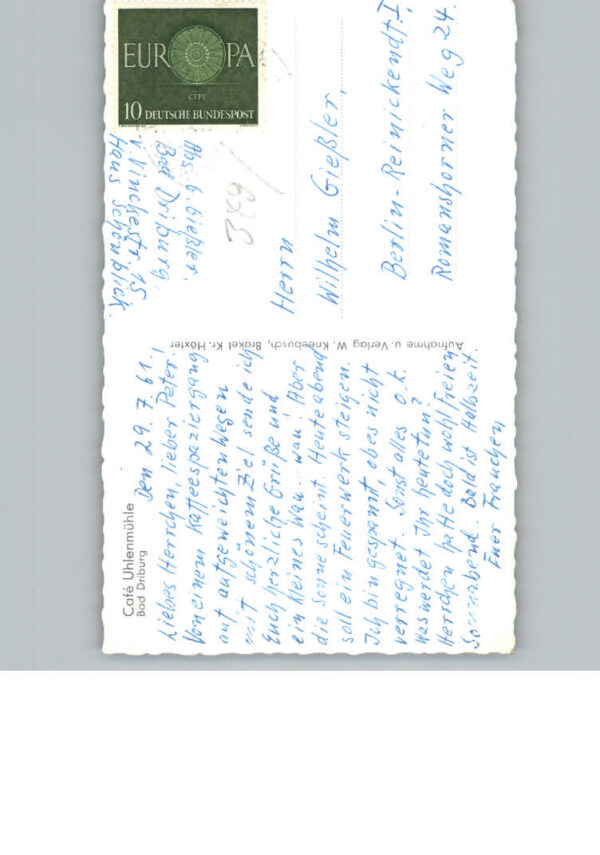 Café Uhlenmühle
Bad Driburg
Den 29.7.61.
Liebes Herrchen, lieber Peter!
Von einem Kaffeespaziergang
auf aufgeweichten Wegen
mit schönem Ziel sende ich
Euch herzliche Grüße und
ein kleines Wau.. wau! Aber
die Sonne scheint. Heute abend
soll ein Feuerwerk steigen.
Ich bin gespannt, ob es nicht
verregnet. Sonst alles o.k.
Was werdet Ihr heute tun?
Herrchen hatte doch wohl freien
Sonnabend. Bald ist Halbzeit.
Euer Frauchen
Aufnahme u. Verlag W. Kneebusch, Brakel Kr. Höxter
EUROPA
CEPT
10 DEUTSCHE BUNDESPOST
Abs. G. Gießler
Bad Driburg
Haus Schönblick.
379
Herrn
Wilhelm Gießler,
Berlin-Reinickendf. I,
Romanshorner Weg 24.